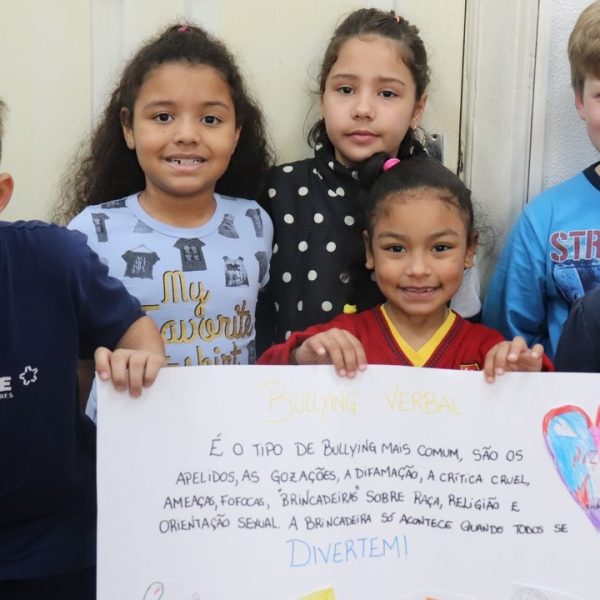 My
Favorite
T-shirt
STR
E
RES
BULLYING VERBAL
É O TIPO DE BULLYING MAIS COMUM, SÃO OS
APELIDOS, AS GOZAÇÕES, A DIFAMAÇÃO, A CRÍTICA CRUEL,
AMEAÇAS, FOFOCAS, "BRINCADEIRAS" SOBRE RAÇA, RELIGIÃO E
ORIENTAÇÃO SEXUAL. A BRINCADEIRA SÓ ACONTECE QUANDO TODOS SE
DIVERTEM!